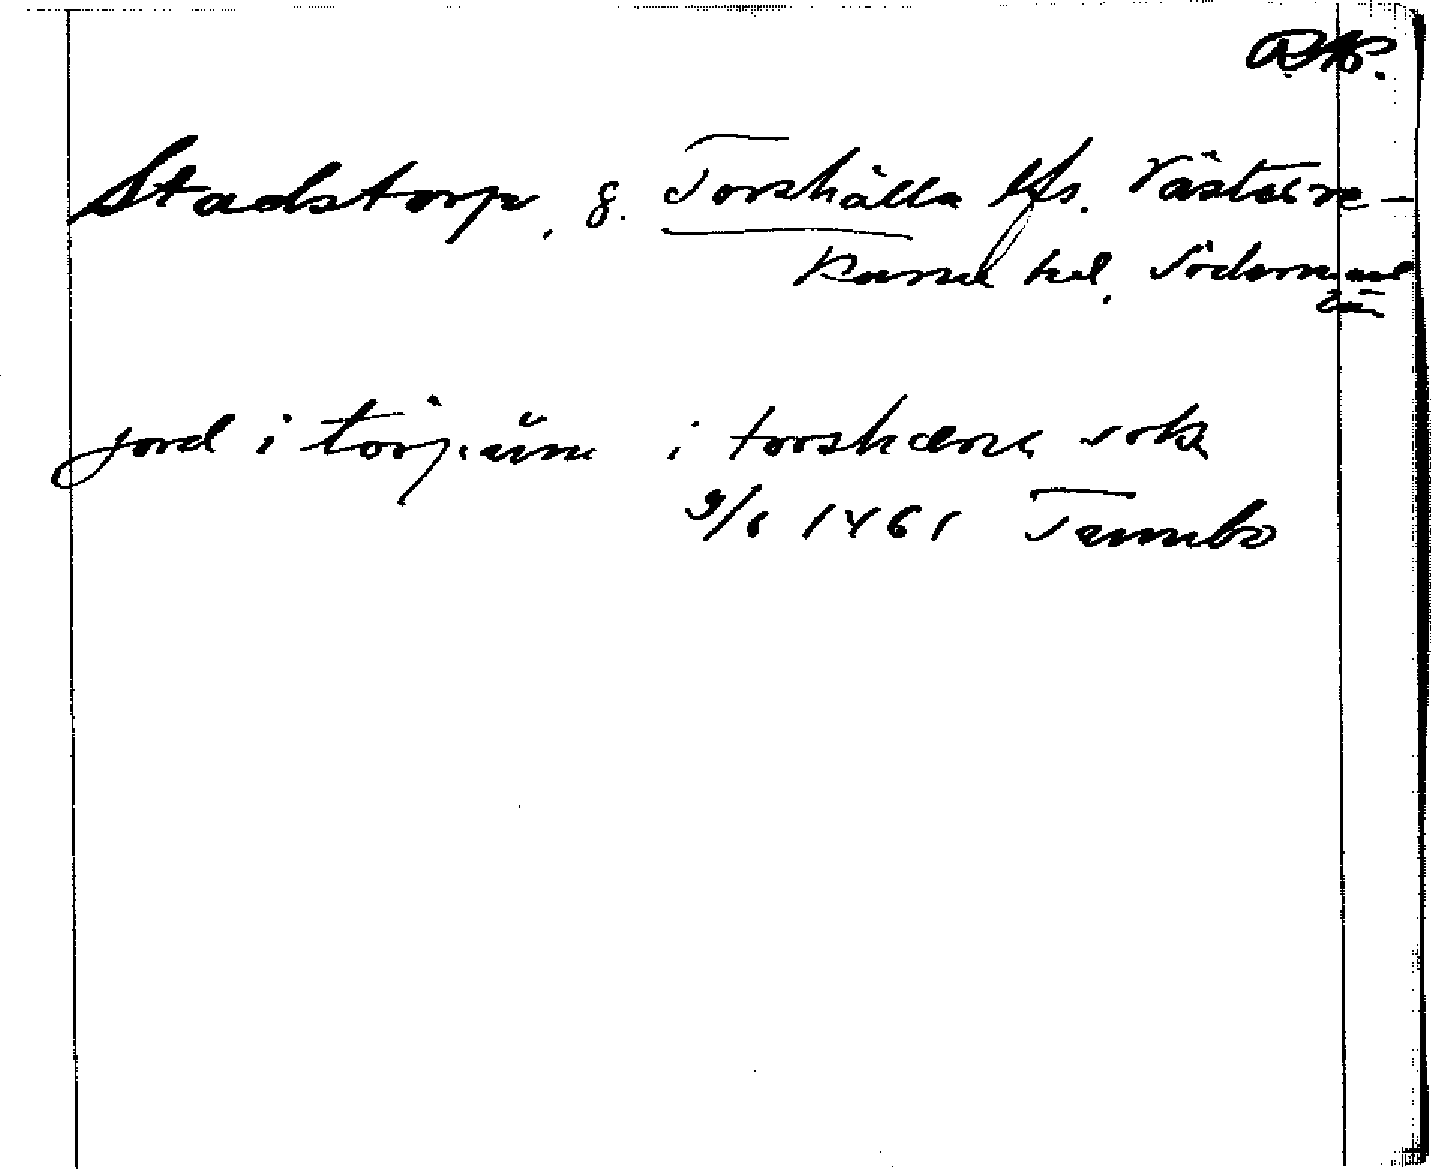 Stadstorp, g. Torshälla lfs. Västerre-
karne hd. Södermanl
län
jord i torpum i torshærgs sokn
9/6 1461 Tumbo